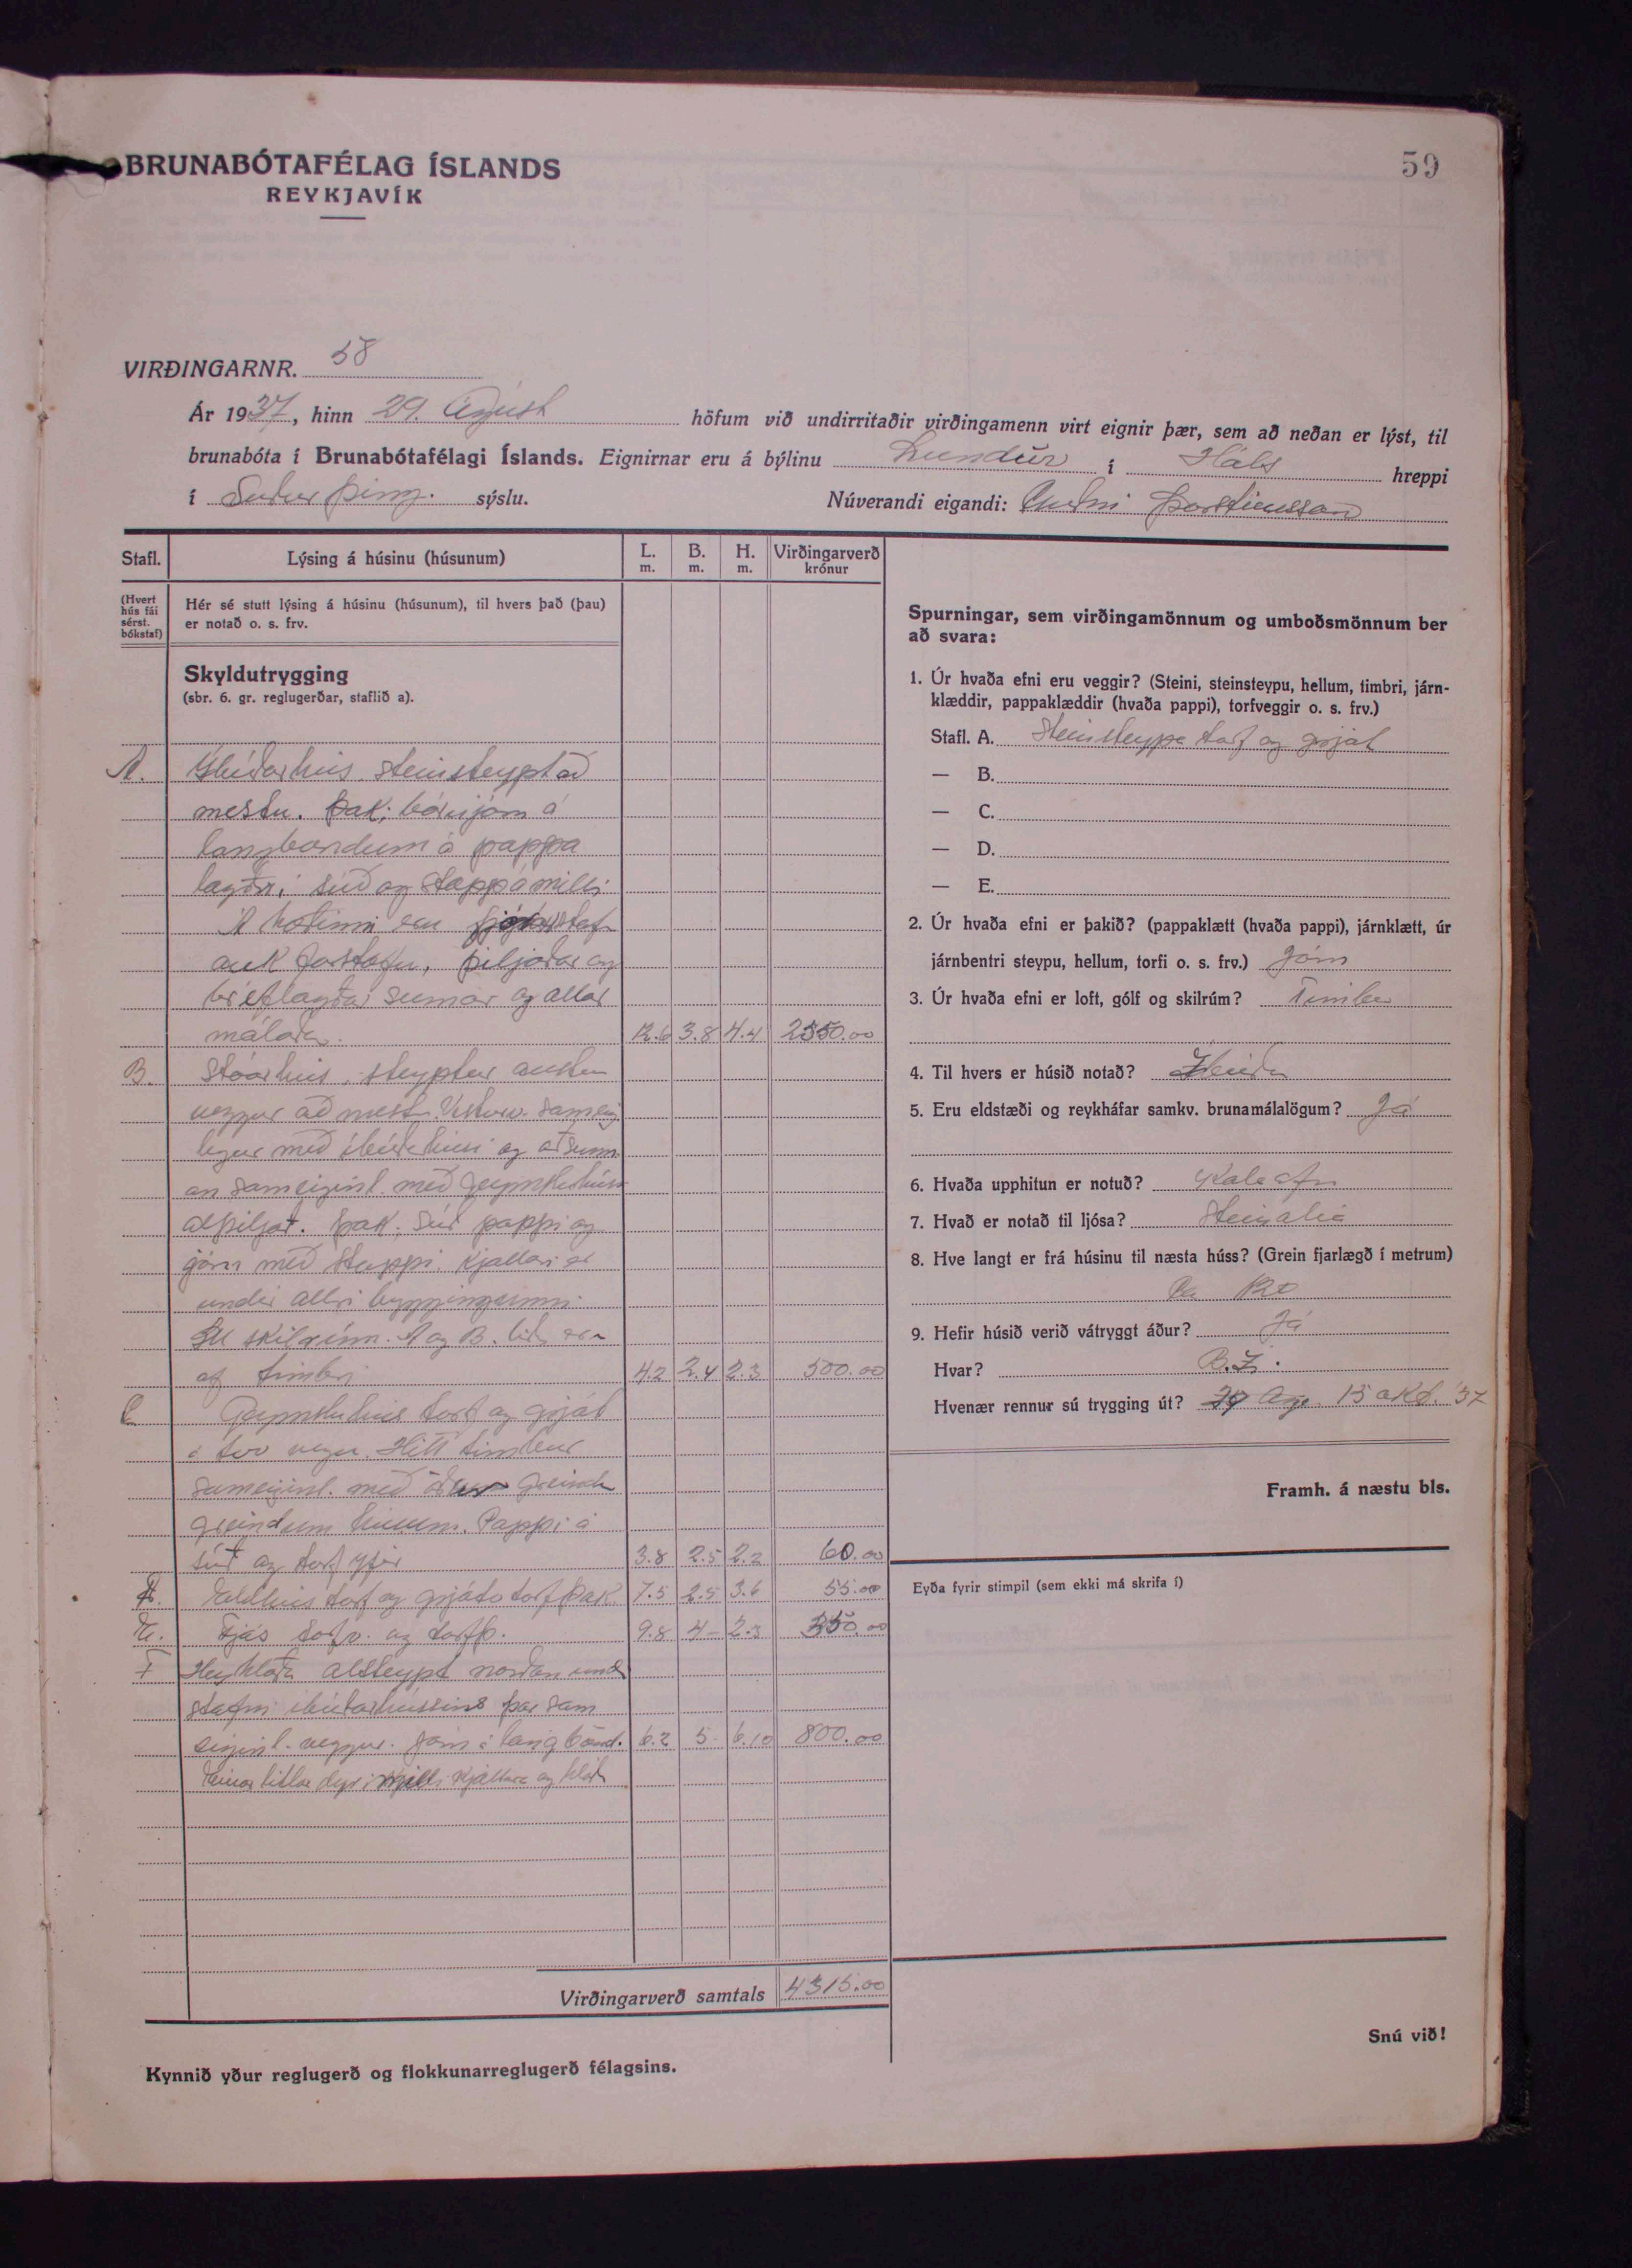 59
BRUNABÓTAFÉLAG ÍSLANDS
REYKJAVÍK
VIRÐINGARNR. 58
Ár 1937, hinn 29. Ágúst höfum við undirritaðir virðingamenn virt eignir þær, sem að neðan er lýst, til
brunabóta í Brunabótafélagi Íslands. Eignirnar eru á býlinu Lundur í Háls hreppi
í Suður þing. sýslu. Núverandi eigandi: Guðni Þorsteinsson
Stafl. Lýsing á húsinu (húsunum) L. m. B. m. H. m. Virðingarverð krónur
(Hvert hús fái sérst. bókstaf)
Hér sé stutt lýsing á húsinu (húsunum), til hvers það (þau)
er notað o. s. frv.
Skyldutrygging
(sbr. 6. gr. reglugerðar, staflið a).
A. Íbúðarhús steinsteypt að
mestu. Þak: bárujárn á
langböndum á pappa
lagðri súð og stopp á milli
Á hæðinni eru
auk forstofu, þiljaðar og
bréflagðar sumar og allar
málaðar. 12.6 3.8 4.4 2550.00
B. Stóarhús, steyptur austur
veggur að mestu. Vesturv. sameig
legur með íbúðarhúsi og að sunn
an sameiginl. með geymsluhúsi
alþiljað. Þak: súð pappi og
járn með stoppi. Kjallari er
undir allri byggingunni
Öll skilrúm. A og B. lið eru
af timbri 4.2 2.4 2.3 500.00
C Geymsluhús torf og grjót
á tvo vegu. Hitt timbur
sameiginl. með áður
greindum húsum. Pappi á
súð og torf yfir 3.8 2.5 2.2 60.00
D. Eldhús torf og grjót torfþak. 7.5 2.5 3.6 55.00
E. Fjós torfv. og torfþ. 9.8 4- 2.3 350.00
F Heyhlaða alsteypt norðan undir
stafni íbúðarhússins þar sam
eiginl. veggur. Járn á langbönd. 6.2 5- 6.10 800.00
Einar litlar dyr í milli kjallara og hlöðu
Virðingarverð samtals 4315.00
Kynnið yður reglugerð og flokkunarreglugerð félagsins.
Spurningar, sem virðingamönnum og umboðsmönnum ber
að svara:
1. Úr hvaða efni eru veggir? (Steini, steinsteypu, hellum, timbri, járn-
klæddir, pappaklæddir (hvaða pappi), torfveggir o. s. frv.)
Stafl. A. Steinsteypa torf og grjót
— B.
— C.
— D.
— E.
2. Úr hvaða efni er þakið? (pappaklætt (hvaða pappi), járnklætt, úr
járnbentri steypu, hellum, torfi o. s. frv.) Járn
3. Úr hvaða efni er loft, gólf og skilrúm? Timbur
4. Til hvers er húsið notað? Íbúðar
5. Eru eldstæði og reykháfar samkv. brunamálalögum? Já
6. Hvaða upphitun er notuð? Kolaofn
7. Hvað er notað til ljósa? Steinolía
8. Hve langt er frá húsinu til næsta húss? (Grein fjarlægð í metrum)
9. Hefir húsið verið vátryggt áður? Já
Hvar? B.Í.
Hvenær rennur sú trygging út? 15 okt. '37
Framh. á næstu bls.
Eyða fyrir stimpil (sem ekki má skrifa í)
Snú við!